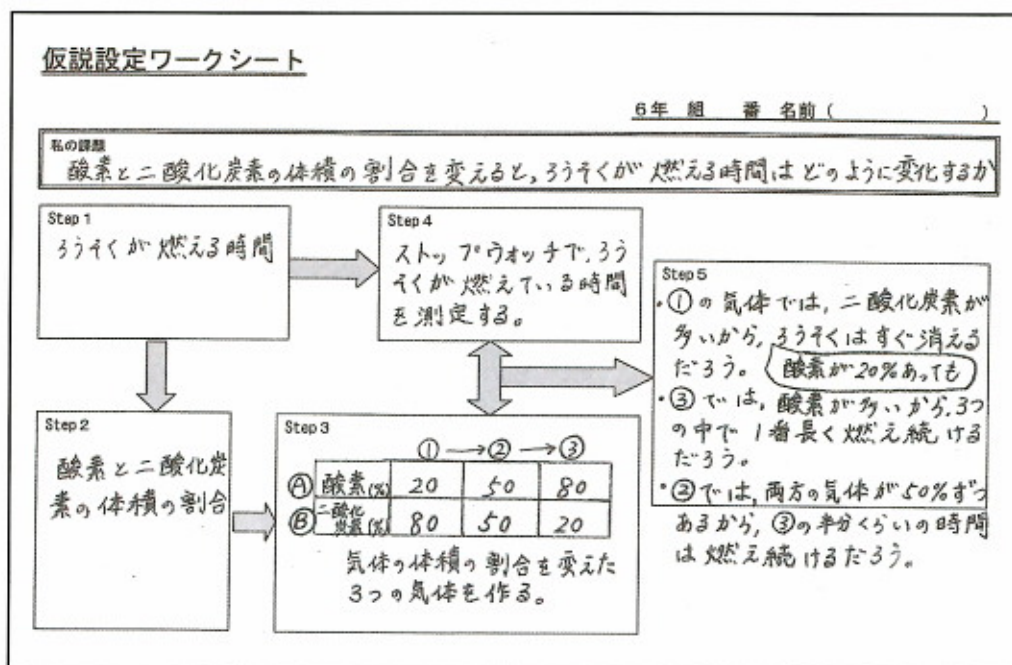 仮説設定ワークシート
6年 組 番 名前 ( )
私の課題
酸素と二酸化炭素の体積の割合を変えると,ろうそくが燃える時間はどのように変化するか
Step 1
ろうそくが燃える時間
Step 2
酸素と二酸化炭
素の体積の割合
Step 3
①→②→③
Ⓐ 酸素(%) 20 50 80
Ⓑ 二酸化
炭素(%) 80 50 20
気体の体積の割合を変えた
3つの気体を作る。
Step 4
ストップウォッチで,ろう
そくが燃えている時間
を測定する。
Step 5
・①の気体では,二酸化炭素が
多いから,ろうそくはすぐ消える
だろう。 酸素が20%あっても
・③では,酸素が多いから,3つ
の中で1番長く燃え続ける
だろう。
・②では,両方の気体が50%ずつ
あるから,③の半分くらいの時間
は燃え続けるだろう。